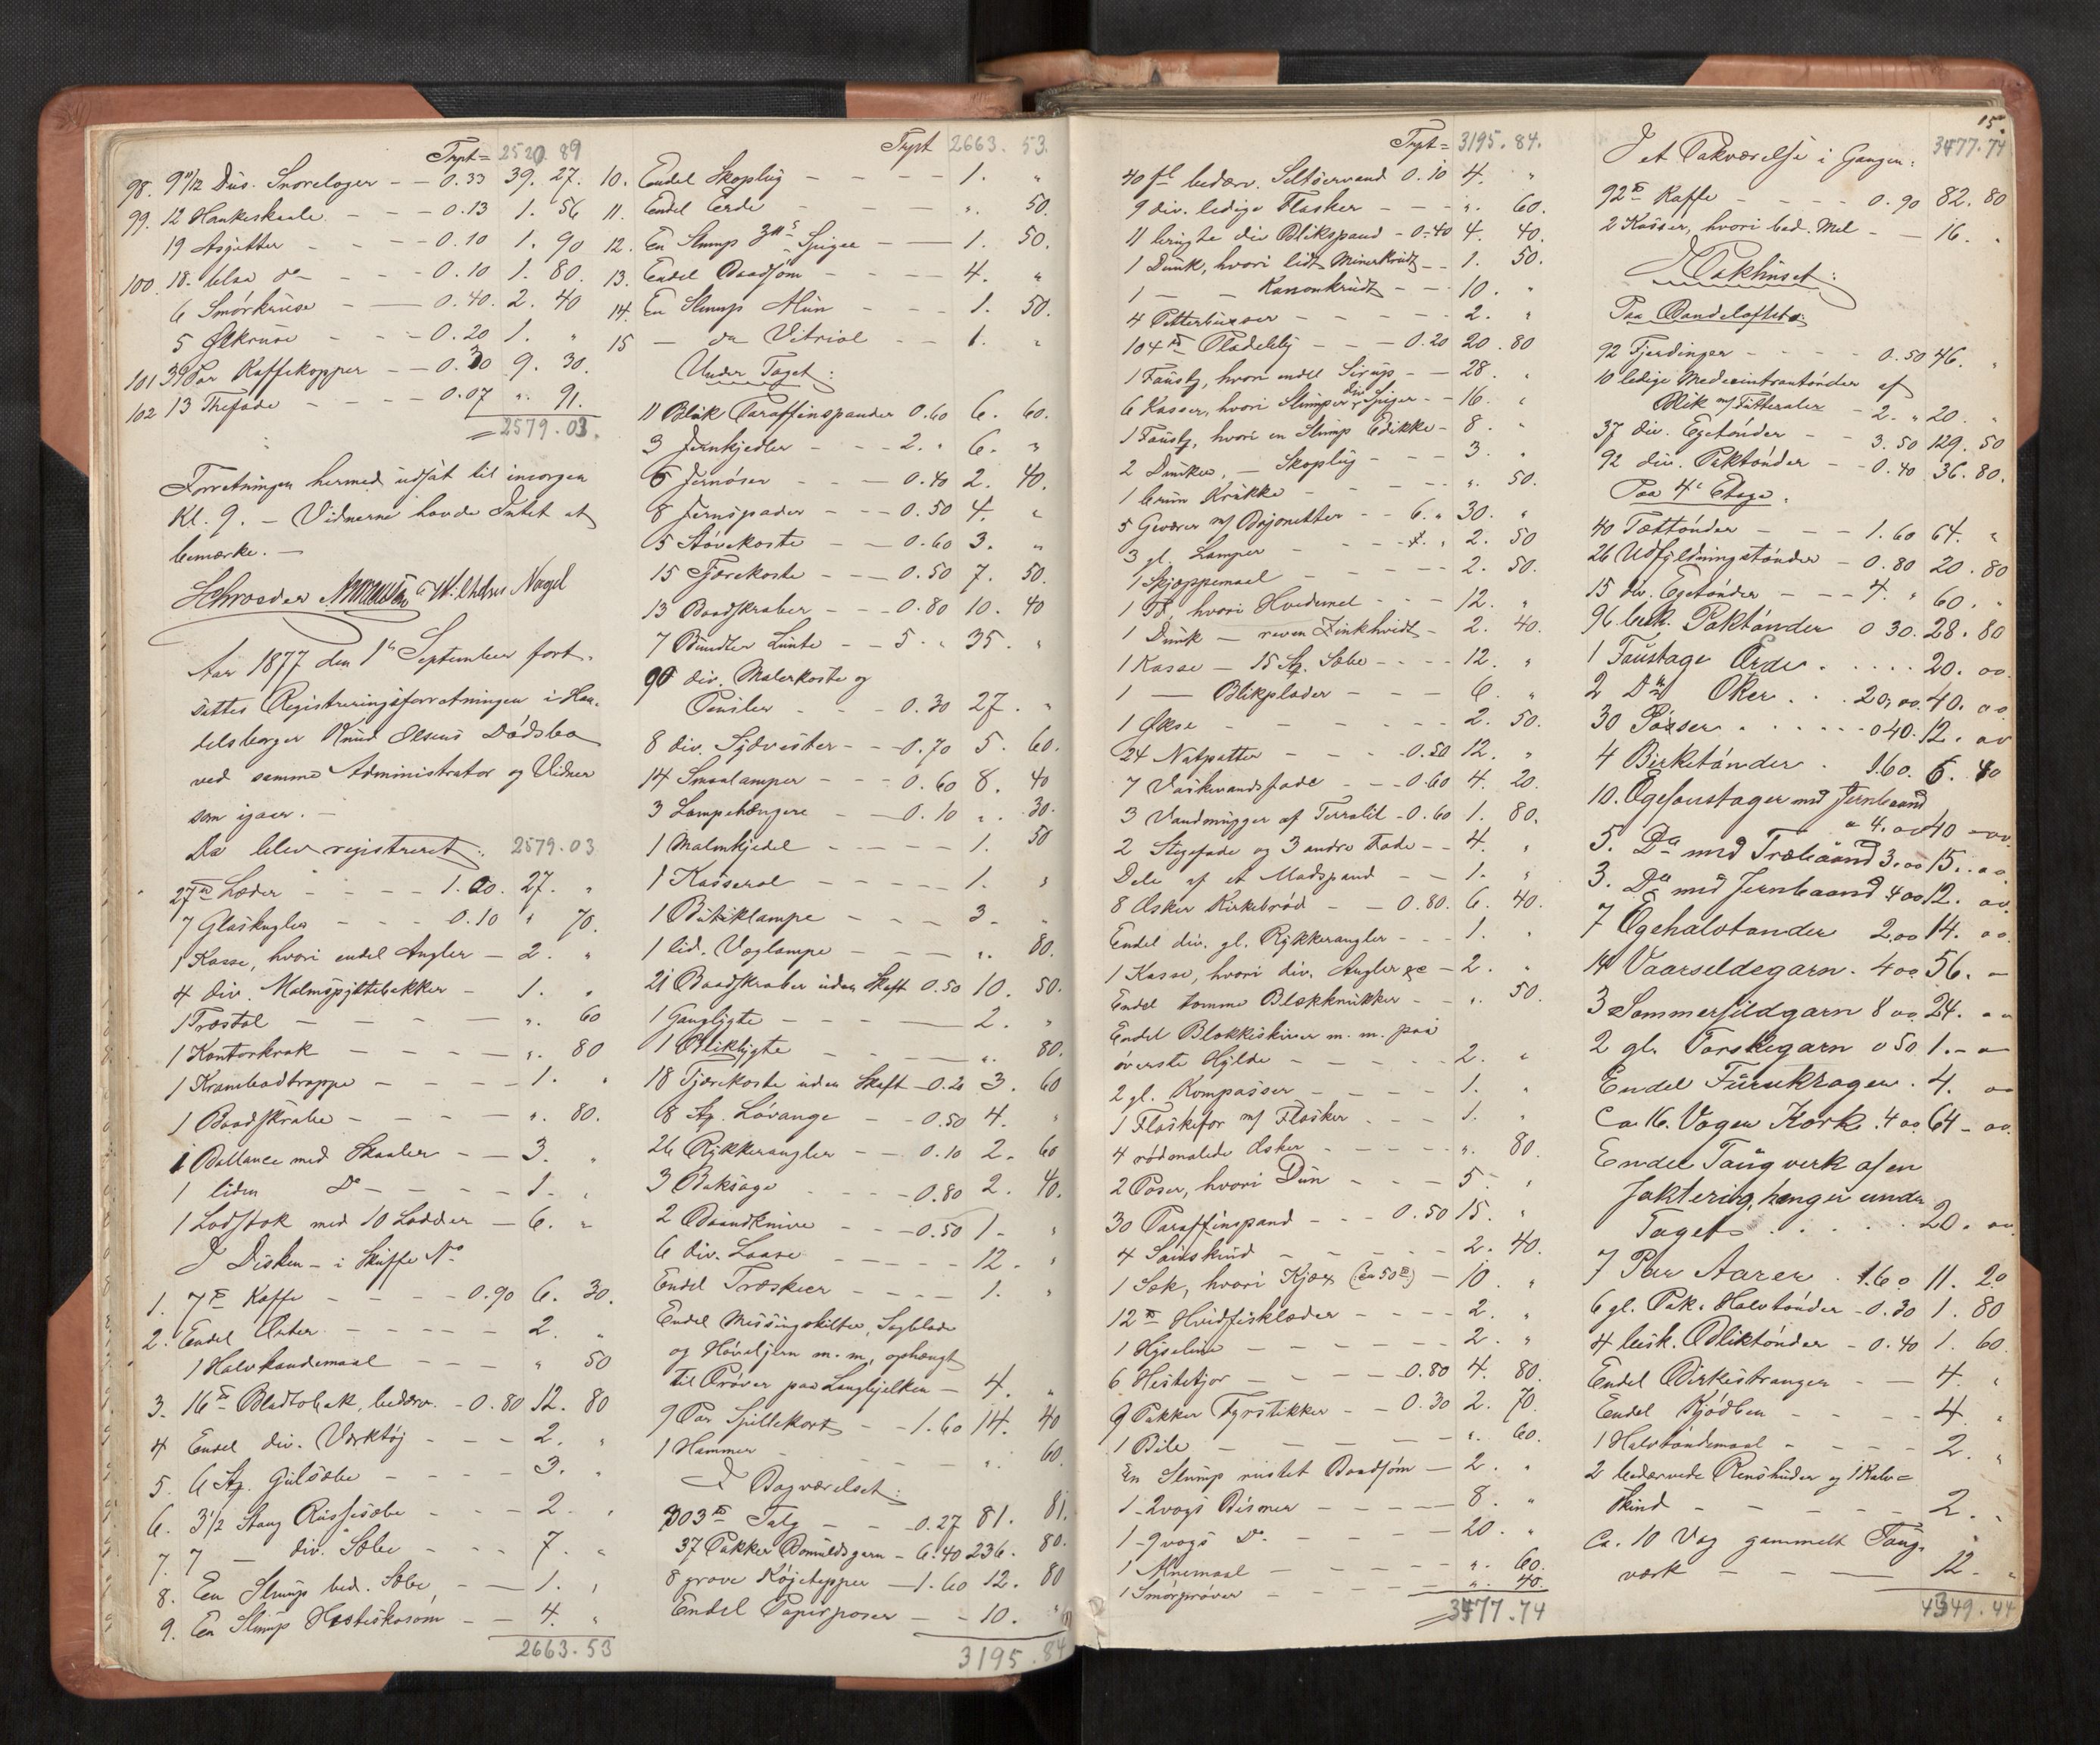 Trspt = 2520. 89
98. 9 11/12 Dus. Snoreloger - - 0.33 39. 27.
99. 12 Hankeskaale - - - 0.13 1. 56
19 Asjetter - - - - 0.10 1. 90
100. 18. blaa do - - - - 0.10 1. 80.
6 Smörkruse - - 0.40. 2. 40
5 Ølkruse - - - 0.20 1. "
101 31 Par Kaffekopper - - 0.30 9. 30.
102 13 Thefade - - - - 0.07 ". 91.
= 2579.03.
Forretningen hermed udsat til imorgen
Kl. 9. - Vidnerne havde Intet at
bemærke. -
Schroeder Wilhelm Nagel
Aar 1877 den 1ste September fort-
sattes Registreringsforretningen i Han-
delsborger Knud Olsens Dödsbo
ved samme Administrator og Vidner
som igaar. -
Da blev registreret: 2579.03
27 ℔ Læder - - - 1.00. 27. "
7 Glaskugler - - - 0.10 " 70.
1 Kasse, hvori endel Angler - 2. "
4 div. Malmspyttebakker - 1. "
1 Træstol - - - - - ". 60
1 Kontorkrak - - - - ". 80
1 Krambodtrappe - - - - 1. "
1 Baadskrabe - - - - - ". 80.
1 Ballance med Skaaler - - 3. "
1 liden Do - - - - - 1. "
1 Lodstok med 10 Lodder - 6. "
I Disken - i Skuffe No
1. 7 ℔ Kaffe - - - - 0.90 6. 30.
2. Endel Urter - - - - - 2. "
1 Halvkandemaal - - - " 50
3. 16 ℔ Bladtobak, bedærv. - 0.80 12. 80
4 Endel div. Værktøj - - - 2. "
5. 6 St. Gulsæbe - - - - 3. "
6. 3 1/2 Stang Russesæbe - - - 2. "
7. 7 - div. Sæbe - - - 7. "
8. En Slump bed. Sæbe - - 1. "
9. En Slump Hesteskosöm - - 4. "
2663.53
Trspt 2663. 53.
10. Endel Skoplug - - - - 1. "
11. Endel Jerde - - - ". 50.
12. En Slump 3"s Spiger - - 1. 50.
13. Endel Baadsöm - - - - 4. "
14. En Slump Alun - - - 1. 50.
15 - do Vitriol - - 1. "
Under Taget:
11 Blik Paraffinspander 0.60 6. 60.
3 Jernkjedler - - - 2. " 6. "
6 Jernöser - - - 0.40 2. 40.
8 Jernspader - - - 0.50 4. "
5 Stövekoste - - 0.60 3. "
15 Tjærekoste - - - 0.50 7. 50.
13 Baadskraber - - - 0.80 10. 40
7 Bundter Lunte - - 5. " 35. "
90 div. Malerkoste og
Pensler - - - 0.30 27. "
8 div. Sydvester - - 0.70 5. 60.
14 Smaalamper - - - 0.60 8. 40
3 Lampehængere - - 0.10 ". 30.
1 Malmkjedel - - - - - 1. 50
1 Kasserol - - - - - 1. "
1 Butiklampe - - - - 3. "
1 lid. Væglampe - - - - ". 80.
21 Baadskraber uden Skaft 0.50 10. 50.
1 Ganglygte - - - - 2. "
1 Bliklygte - - - - - ". 80.
18 Tjærekoste uden Skaft - 0.20 3. 60
8 St. Lövange - - 0.50 4. "
26 Rykkerangler - - 0.10 2. 60
3 Baksage - - - - 0.80 2. 40.
2 Baandknive - - - 0.50 1. "
6 div. Laase - - - - - 12. "
Endel Træskeer - - - - 1. "
Endel Messingskilter, Sagblade
og Høveljern m. m., ophængt
til Prøver paa Langhjelken - 4. "
9 Par Spillekort - - 1.60 14. 40
1 Hammer - - - - - ". 60.
I Bagværelset:
303 ℔ Talg - - - 0.27 81. 81.
37 Pakker Bomuldsgarn - 6.40 236. 80.
8 grove Köjetepper - 1.60 12. 80
Endel Papirposer - - 10. "
3195.84
Trspt = 3195. 84.
40 fl bedærv. Seltservand 0.10 4. "
9 div. ledige Flasker - - - ". 60.
11 brugte div Blikspand - 0.40 4. 40.
1 Dunk, hvori lidt Minerkrudt - - 1. 50.
1 - - Kanonkrudt - - - 10. "
4 Petterbusser - - - - - 2. "
104 ℔ Pladebly - - - 0.20 20. 80
1 Faustg, hvori endel Sirup - - 28. "
6 Kasser, hvori Slumper div Spiger - - 16. "
1 Faustg, hvori en Slump Edikke - 8. "
2 Dunker, - Skoplug - - - 3. "
1 brun Krukke - - - - - ". 50.
5 Geværer m/ Bajonetter - - 6. " 30. "
3 gl. Lamper - - - - - 2. 50
1 Skjæppemaal - - - - - 2. 50.
1 Td. hvori Hvedemel - - - 12. "
1 Dunk - reven Zinkhvidt - 2. 40.
1 Kasse - 15 St. Sæbe - - - 12. "
1 - Blikplader - - - 6. "
1 Øxe - - - - - - 2. 50.
24 Natpotter - - - - 0.50 12. "
7 Vaskevandsfade - - 0.60 4. 20.
3 Vandmugger af Terralit - 0.60 1. 80.
2 Stegefade og 3 andre Fade - - 4. "
Dele af et Madspand - - 1. "
8 Æsker Kirkebröd - - 0.80. 6. 40.
Endel div. gl. Rykkerangler - - - 1. "
1 Kasse, hvori div. Angler &c - 2. "
Endel tomme Blækkrukker - - ". 50.
Endel Blokkeskiver m. m. paa
överste Hylde - - - - - 2. "
2 gl. Kompasser - - - - 1. "
1 Flaskefor m/ Flasker - - - 1. "
4 rödmalede Æsker - - - - - ". 80.
2 Poser, hvori Dun - - - 5. "
30 Paraffinspand - - - 0.50 15. "
4 Saueskind - - - - - 2. 40.
1 Sæk, hvori Kjæx (ca 50 ℔) - 10. "
12 ℔ Hvidfisklæder - - - - 2. "
1 Hyseline - - - - - 2. "
6 Hestetjor - - - - 0.80 4. 80.
9 Pakker Fyrstikker - - 0.30 2. 70.
1 Bile - - - - - ". 60.
En Slump rustet Baadsöm - 2. "
1 - 2vogs Bismer - - - - - 8. "
1 - 9vogs Do. - - - - - 20. "
1 Alnemaal - - - - - - ". 60.
1 Smörpröver - - - - - - ". 40.
= 3477.74
15.
3477.74
I et Takværelse i Gangen:
92 ℔ Kaffe - - - - - 0.90 82. 80
2 Kasser, hvori bed. Mel - - 16. "
I Pakhuset:
Paa Bandeloftet:
92 Fjerdinger - - - - 0.50 46. "
10 ledige Medecintrantönder af
Blik m/ Futteraler - 2. " 20. "
37 div. Egetönder - - 3.50 129. 50
92 div. Paktönder - - 0.40 36. 80.
Paa 4de Etage.
40 Tættönder - - - 1.60 64. "
26 Udfyldningstönder - 0.80 20. 80
15 div. Egetönder - - - 4. " 60. "
96 besk. Paktönder 0 30. 28. 80
1 Faustage Erde . . . . . 20. 00.
2 Do Oker . . 20,00. 40. 00
30 Poser . . . . . . 0 40. 12. 00
4 Birketönder . 1.60. 6. 40
10. Egefoustager med Jernbaand
a 4.00 40 - 00.
5. Do med Træbaand 3.00 15. 00
3. Do med Jernbaand 4 00 12. 00.
7 Egehalvtønder 2,00 14. 00
14 Vaarseldegarn. 4 00 56. -
3 Sommersildgarn 8 00 24. 00
2 gl. Torskegarn 0 50 1. - 00
Endel Furukrager. 4. 00
Ca. 16. Vager Kork. 4 00 64 - 00.
Endel Taugverk af en
Jakterig, henger under
Taget . . . . . 20. 00
7 Par Aarer . 1.60 11. 20
6 gl. Pak. Halvtönder - 0.30 1. 80
4 besk. Bliktönder - 0.40 1. 60.
Endel Birkestranger - - 4. "
Endel Kjödben - - - - 4. "
1 Halvtöndemaal - - - - 2. "
2 bedærvede Renshuder og 1 Kalv=
skind - - - - - 2. "
Ca. 10 Vog gammelt Taug-
værk - - - 12. "
4349.44